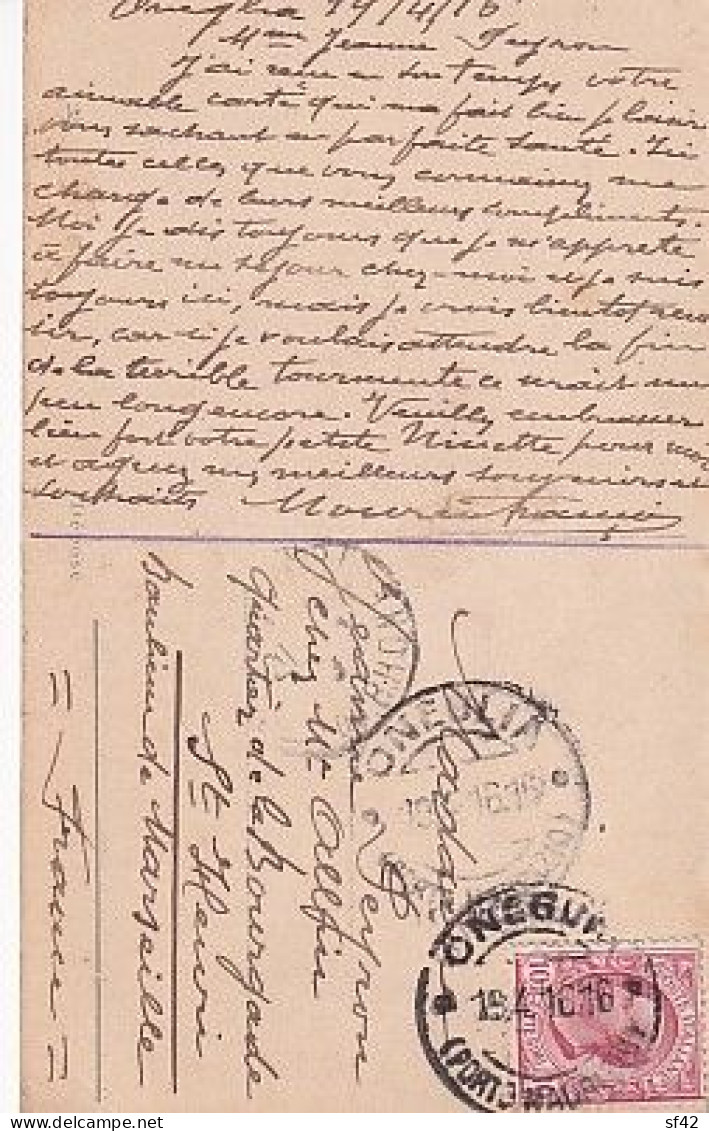 Oneglia 14/4/16
Mme Jeanne Peyron
J'ai reçu en son temps votre
aimable carte qui m'a fait bien plaisir
vous sachant en parfaite santé. Ici
toutes celles que vous connaissez me
charge de leurs meilleurs compliments.
Moi je dis toujours que je m'apprete
à faire un séjour chez-moi et je suis
toujours ici, mais je crois bientot
car si je voulais attendre la fin
de la terrible tourmente ce serait un
peu long encore. Veuillez embrasser
bien fort votre petite Ninette pour moi
et agréez mes meilleurs souvenirs et
souhaits
Madame
Jeanne Peyron
chez Mr
Quartier de la Bourgade
St Henri
Banlieue de Marseille
= France =
ONEGLIA
16.15
ONEGLIA
15.4.16 16
(PORTO MAURIZIO)
sf42